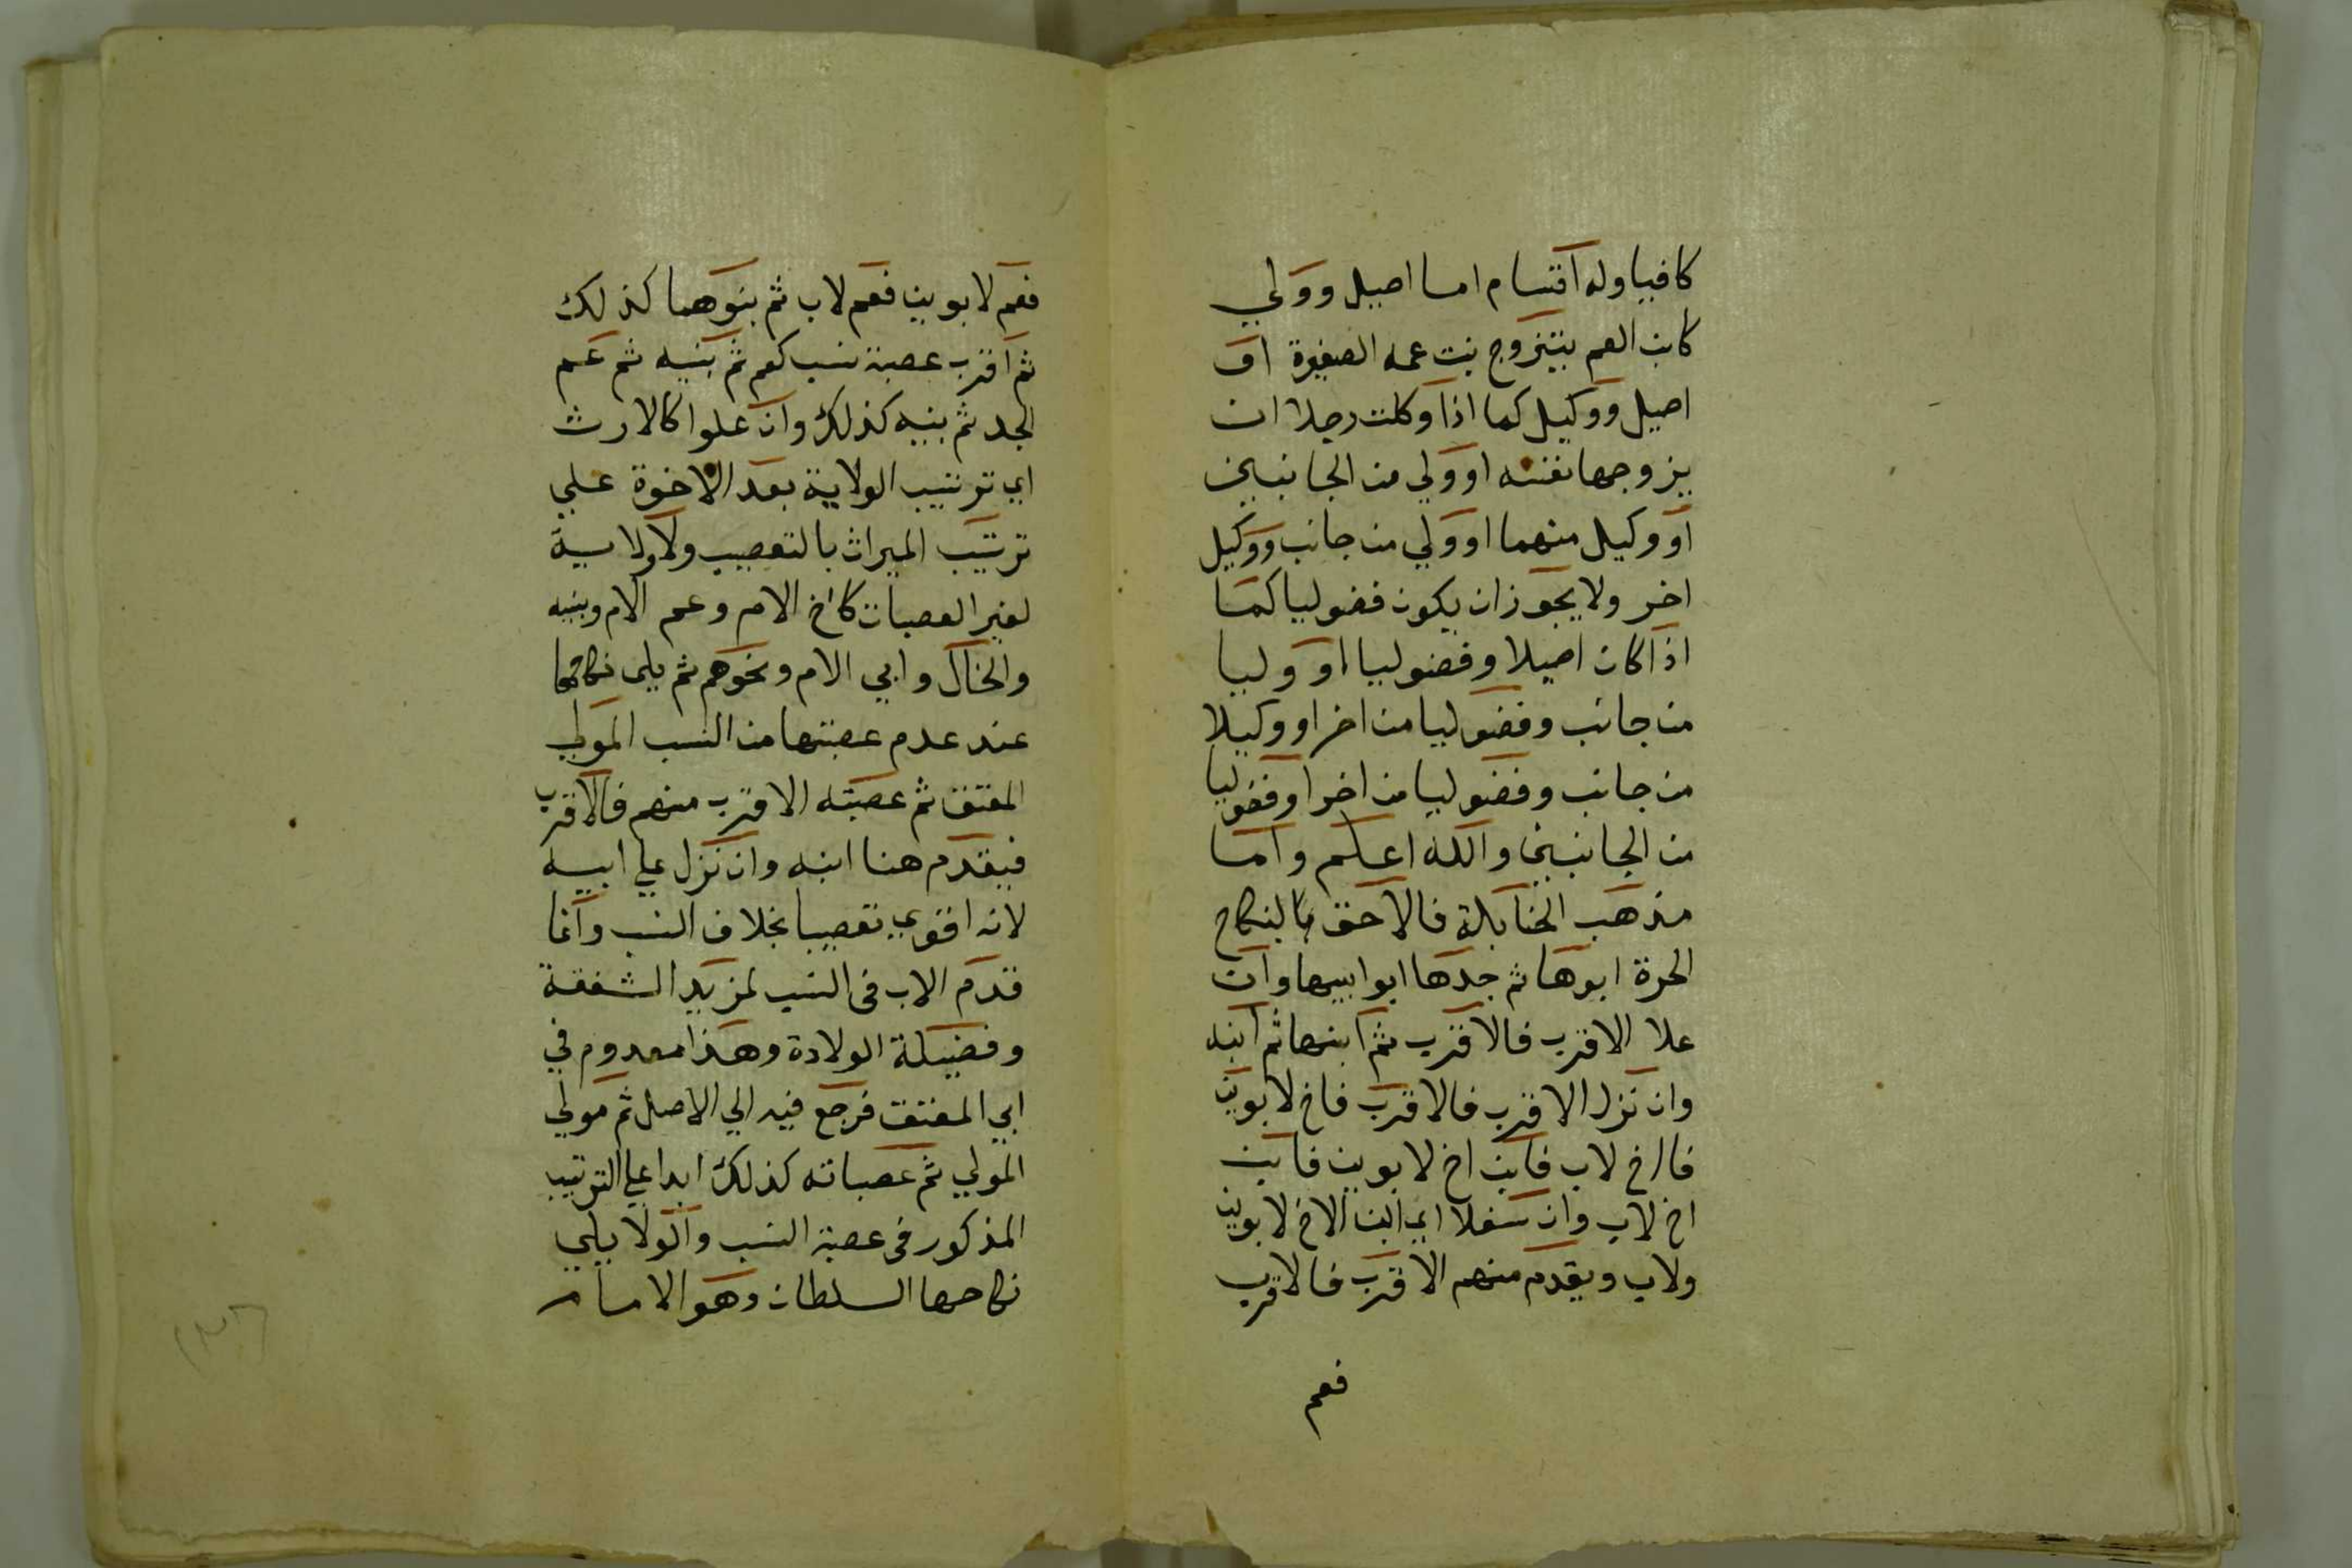 كافيا وله اقسام اما اصيل وولي
كابن العم يتزوج بنت عمه الصغيرة او
اصيل ووكيل كما اذا وكلت رجلا ان
يزوجها نفسه او ولي من الجانبين
او وكيل منهما او ولي من جانب ووكيل
اخر ولا يجوز ان يكون فضوليا كما
اذا كان اصيلا وفضوليا او وليا
من جانب وفضوليا من اخر او وكيلا
من جانب وفضوليا من اخر او فضوليا
من الجانبين والله اعلم واما
مذهب الحنابلة فالاحق بالنكاح
الحرة ابوها ثم جدها ابو ابيها وان
علا الاقرب فالاقرب ثم ابنها ثم ابنه
وان نزل الاقرب فالاقرب فاخ لابوين
فاخ لاب فابن اخ لابوين فابن
اخ لاب وان سفلا اي ابن الاخ لابوين
ولاب ويقدم منهم الاقرب فالاقرب
فعم
فعم لابوين فعم لاب ثم بنوهما كذلك
ثم اقرب عصبة نسب كعم ثم بنيه ثم عم
الجد ثم بنيه كذلك وان علوا كالارث
اي ترتيب الولاية بعد الاخوة علي
ترتيب الميراث بالتعصيب ولا ولاية
لغير العصبات كاخ الام وعم الام وبنيه
والخال وابي الام ونحوهم ثم يلي نكاحها
عند عدم عصبتها من النسب المولي
المعتق ثم عصبته الاقرب منهم فالاقرب
فيقدم هنا ابنه وان نزل علي ابيه
لانه اقوي تعصيبا بخلاف النسب وانما
قدم الاب في النسب لمزيد الشفقة
وفضيلة الولادة وهذا معدوم في
ابي المعتق فرجع فيه الي الاصل ثم مولي
المولي ثم عصباته كذلك ابدا علي الترتيب
المذكور في عصبة النسب والولا يلي
نكاحها السلطان وهو الامام